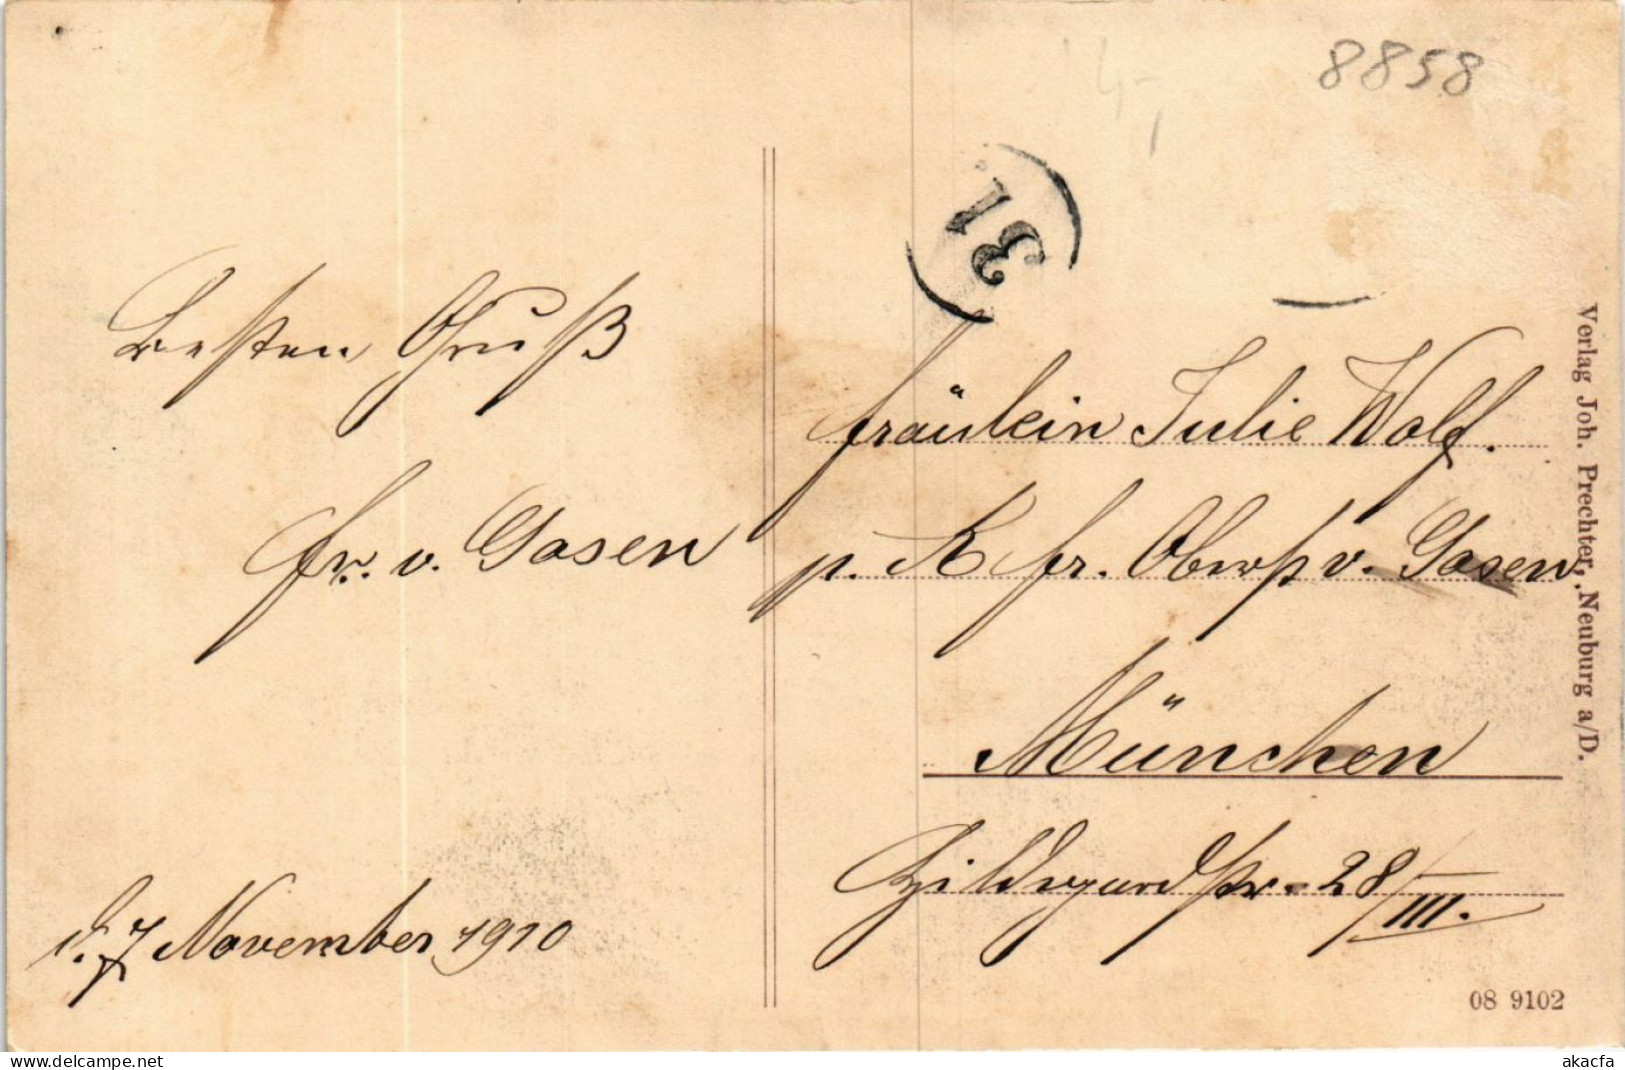 8858
31.
Besten Gruß
Fr. v. Gosen
d. 7 November 1910
Fräulein Julie Wolf.
p. Fr. v. Gosen
München
Hildegardstr. 28/III.
Verlag Joh. Prechter, Neuburg a/D.
08 9102
delcampe.net
akacfa